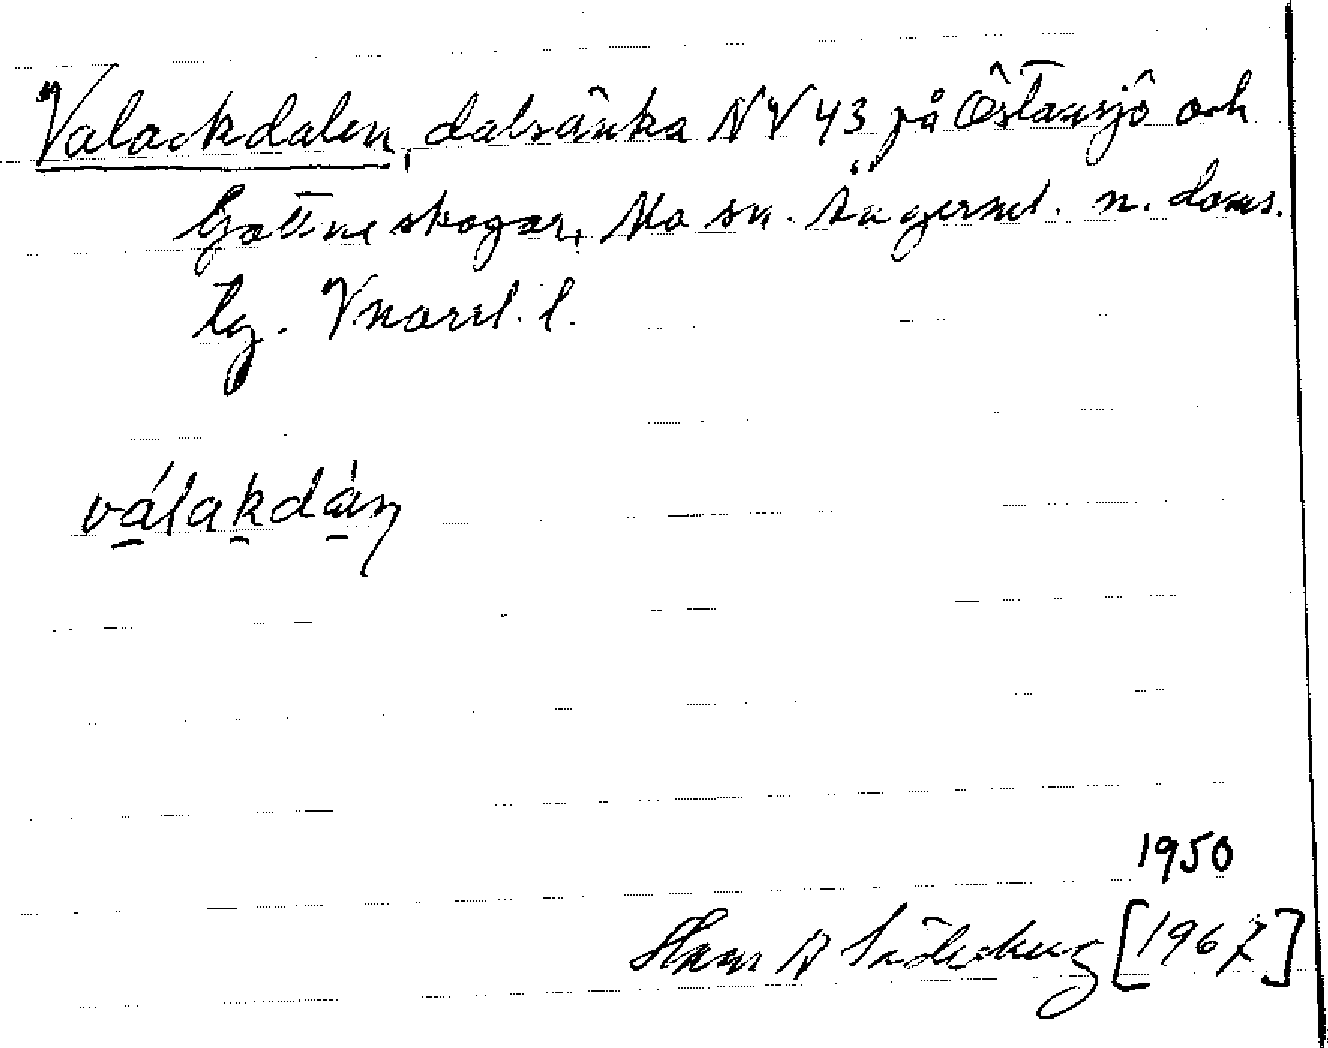 Valackdalen, dalsänka NV 43 på Östansjö och
Gottne skogar, Mo sn. Ångerml. n. doms.
tg. Vnorrl. l.
válakdàn
1950
Hans A Söderberg [1967]